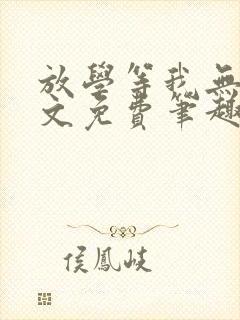 放學等我無
文免費筆趣
侯鳳岐